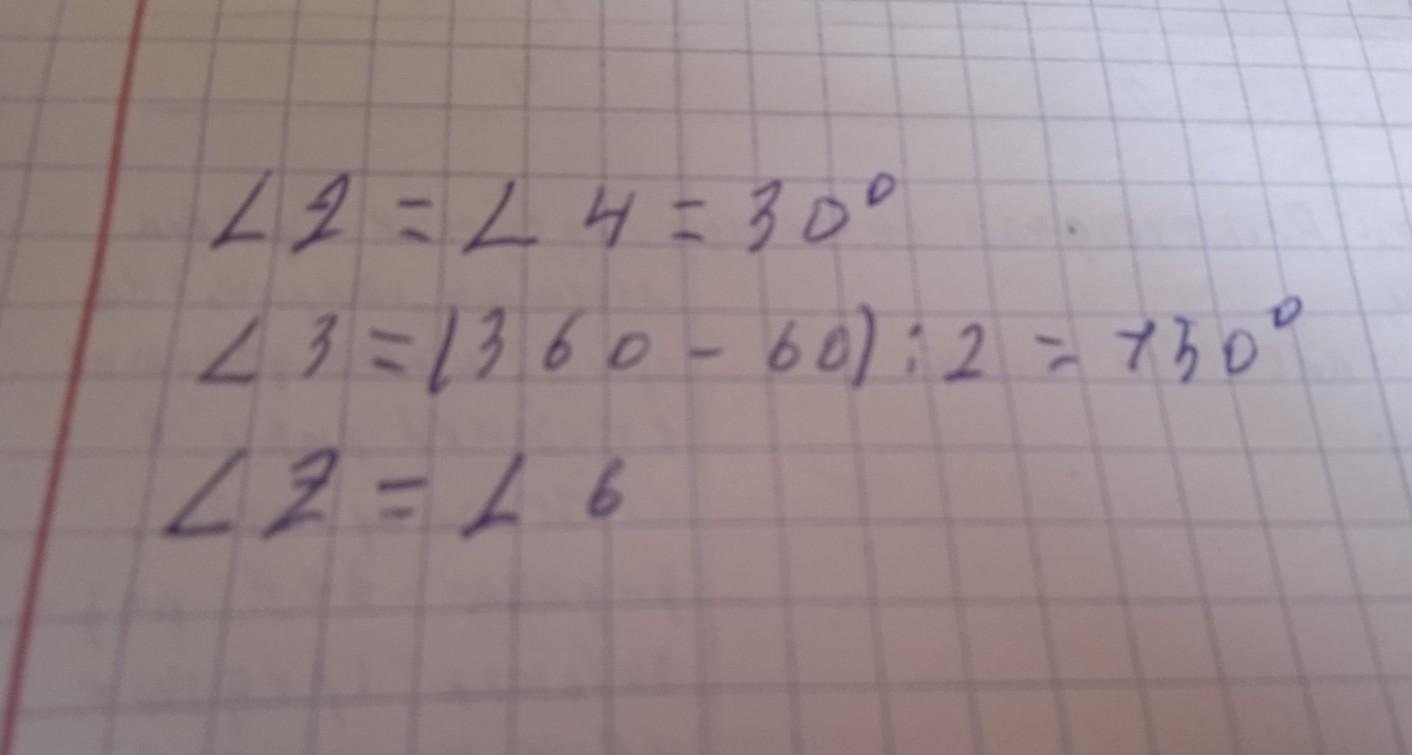 ∠2 = ∠4 = 30°
∠3 = (360 - 60) : 2 = 150°
∠2 = ∠6